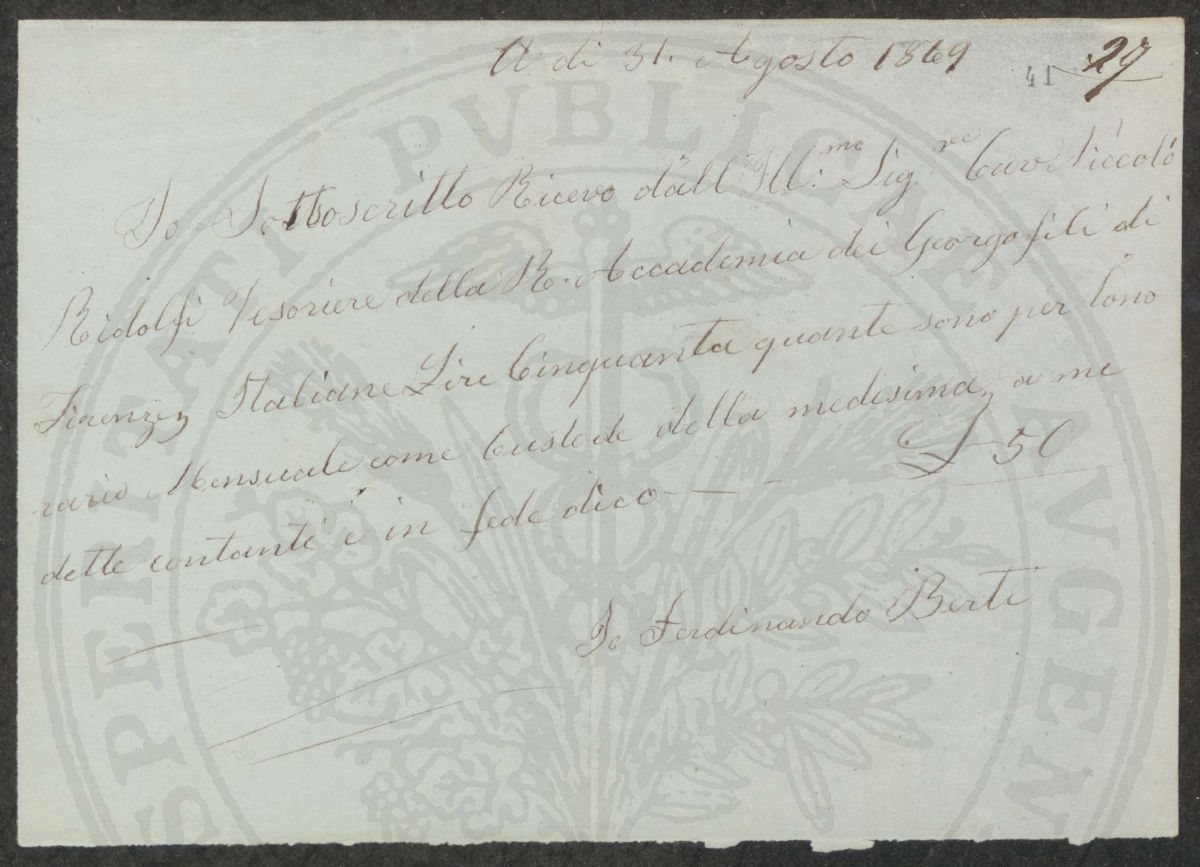 A di 31. Agosto 1869
41 29
Io Sottoscritto Ricevo dall' Ill.mo Sigre Cav Niccolò
Ridolfi Tesoriere della R. Accademia dei Georgofili di
Firenze, Italiane Lire Cinquanta quante sono per lono
rario Mensuale come Custode della medesima, a me
dette contanti e in fede dico — — - £ 50
Io Ferdinando Berti
PVBLICAE
PROSPERITATI
AVGEN